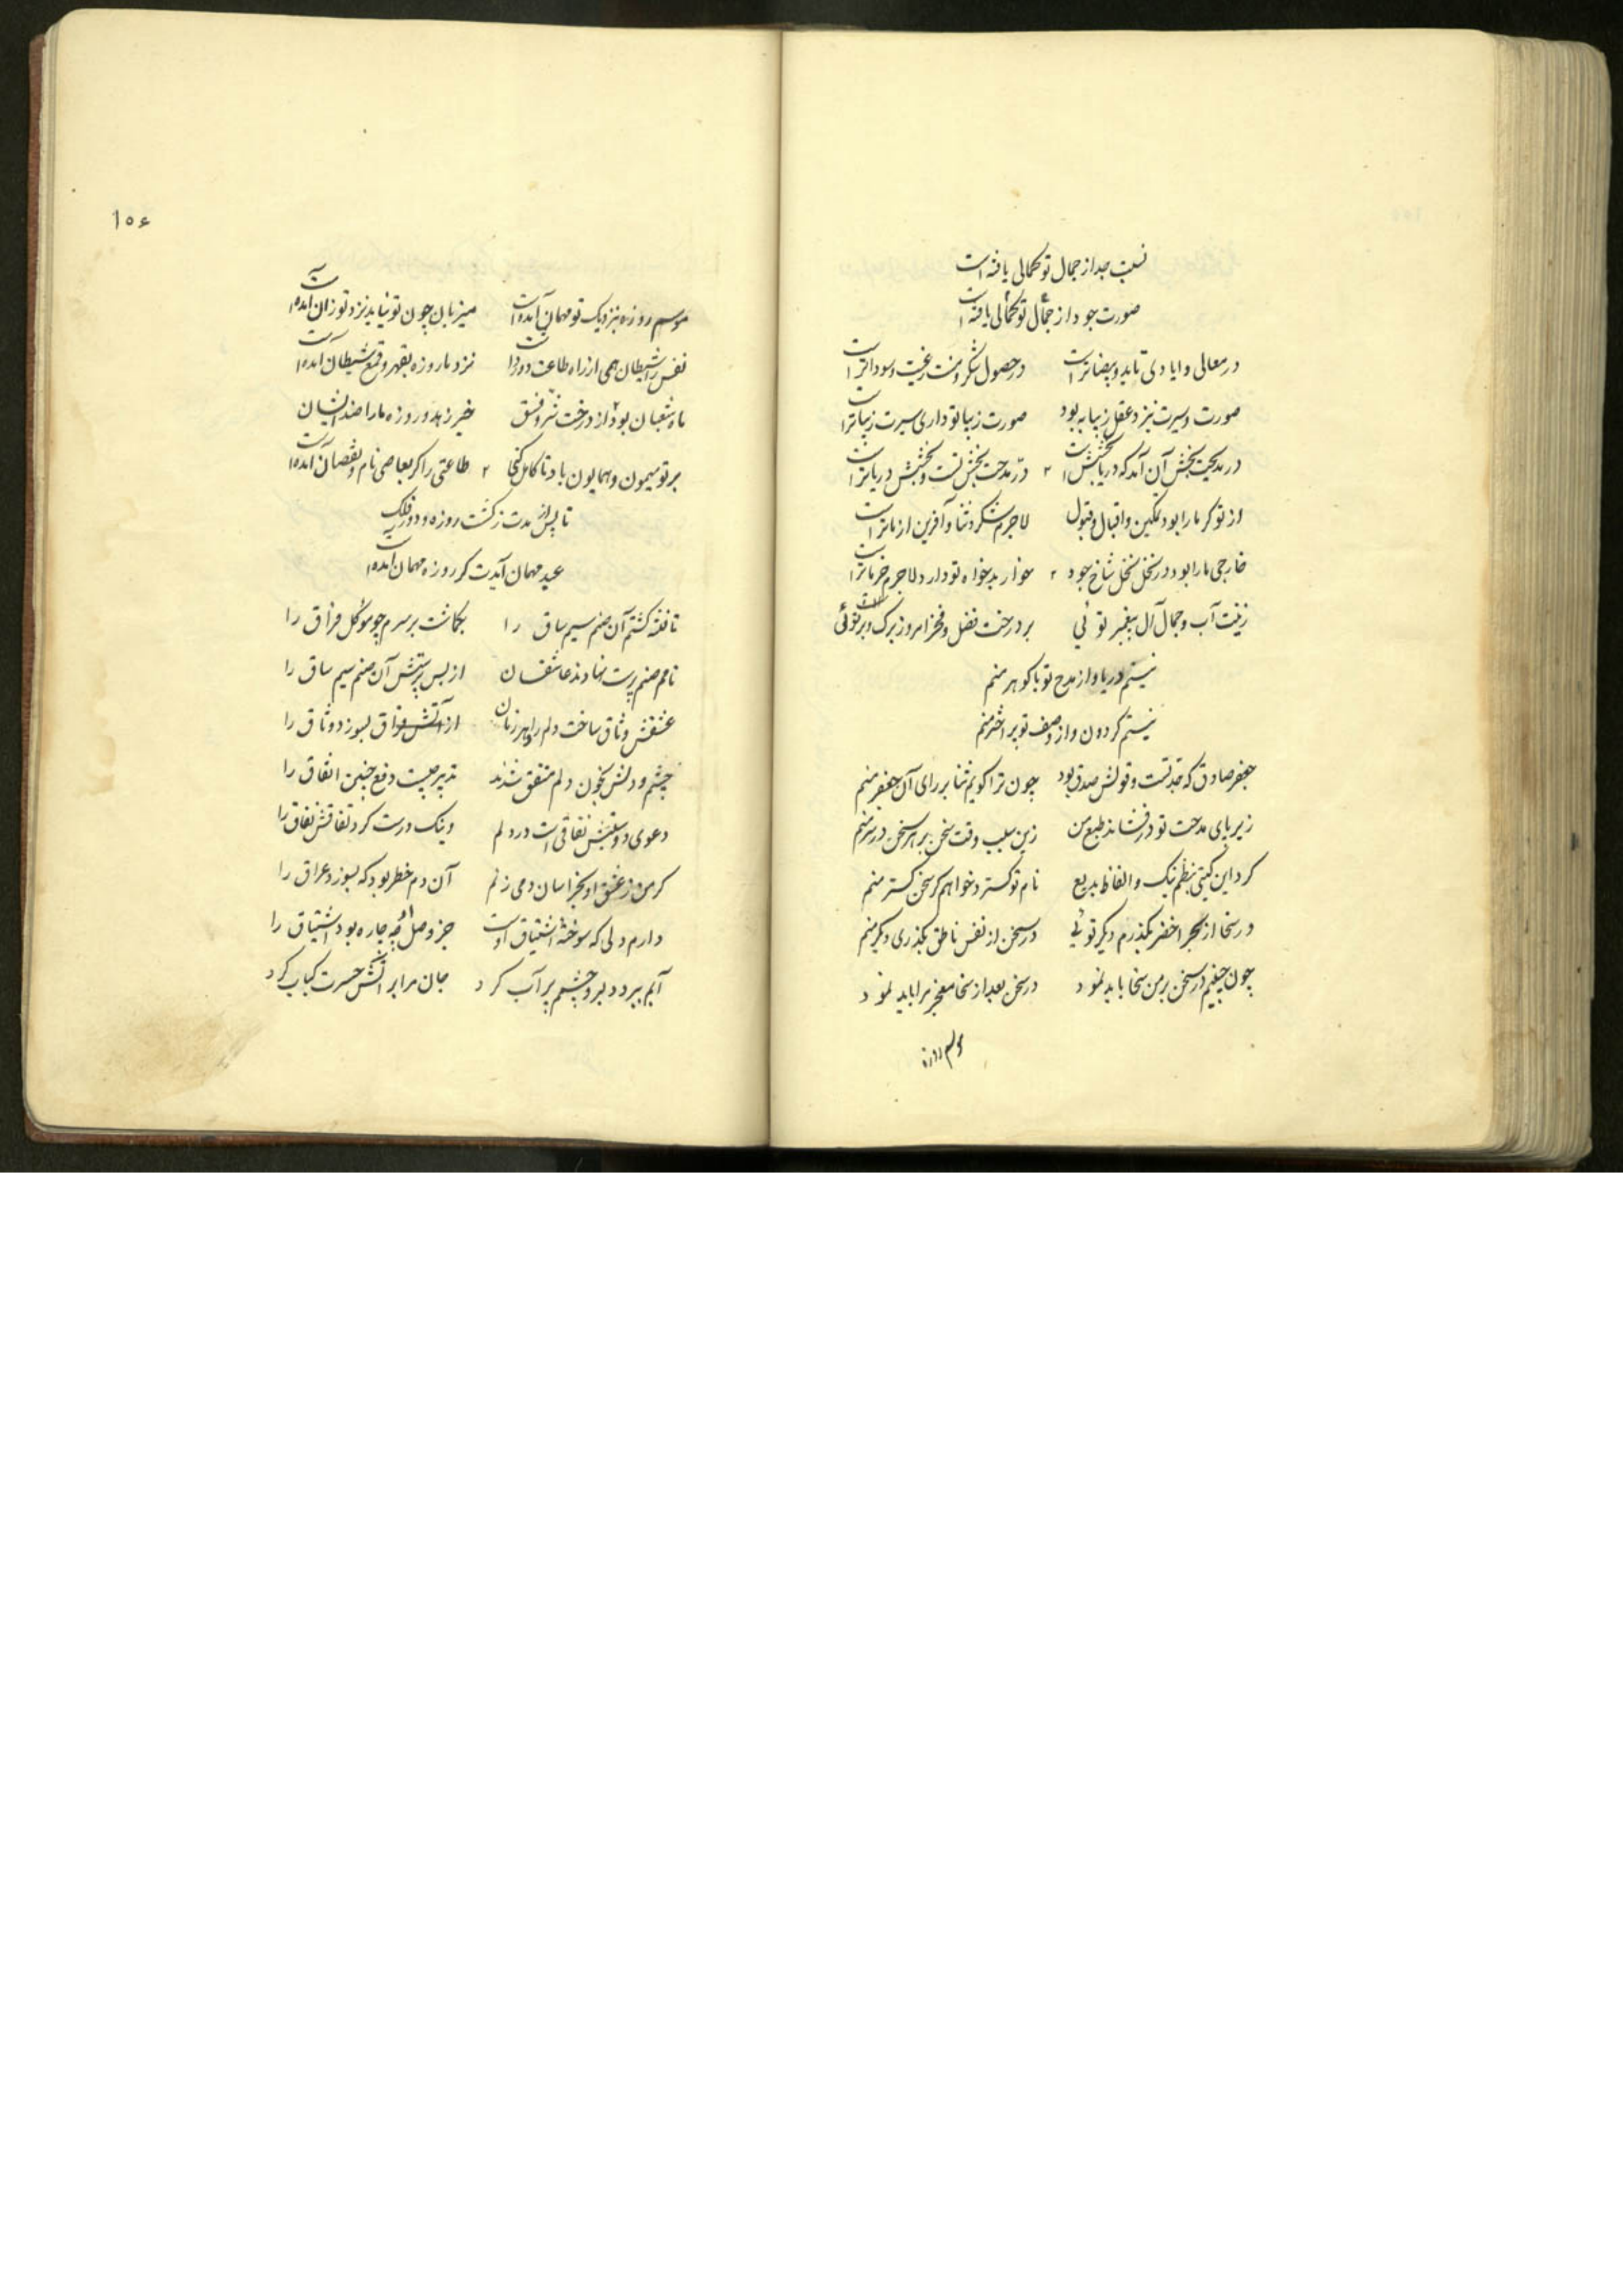 نسبت جد از جمال تو کمالی یافته است
صورت جود از جمال تو کمالی یافته است
در معالی و ایادی تایید و بیضا تراست در حصول شکر و منت رغبت و سودا تراست
صورت و سیرت نزد عقل زیبا به بود صورت زیبا تو داری سیرت زیبا تراست
در مدیحت بخش آن آمد که دریا بخش است در مدحت بخش تست و بخشش دریا تراست
از تو کر ما را بود تمکین و اقبال و قبول لاجرم شکر و ثنا و آفرین از ما تراست
خارجی ما را بود در نخل نخل شاخ جود خوار بدخواه تو دارد لاجرم خرما تراست
زینت آب و جمال آل پیغمبر توئی بر درخت فضل و فخر امروز برک و بر توئی
نیستم دریا و از مدح تو با کوهر منم
نیستم کردون و از وصف تو بر اختر منم
جعفر صادق که جد تست و قولش صدق بود چون ترا کویم ثنا بر رای آن جعفر منم
زیر پای مدحت تو در فشاند طبع من زین سبب وقت سخن بر هر سخن در سر منم
کرد این کیتی بنظم نیک و الفاظ بدیع نام تو کسترد خواهم کر سخن کستر منم
در سخا از بحر اخضر بکذرم دیکر توئی در سخن از نفس ناطق بکذری دیکر منم
چون چنینم در سخن بر من سخا باید نمود در سخن بعد از سخا معجز مرا باید نمود
موسم روزه
۱۰۶
موسم روزه بنزدیک تو مهمان آمده است میزبان چون تو نیابد نزد تو زان آمده است
نفس را شیطان همی از راه طاعت دور داشت نزد ما روزه بقهر و قمع شیطان آمده است
ماه شعبان بود از درخت شر و فسق خیر زهد و روزه ما را ضد ایشان
بر تو میمون و همایون باد تا کامل کنی طاعتی را کر معاصی نام و نقصان آمده است
تا پس از مدت زکشت روزه و دور فلک
عید مهمان آیدت کر روزه مهمان آمده است
تا فتنه کشتم آن صنم سیم ساق را بکماشت بر سرم چو موکل فراق را
نامم صنم پرست نهادند عاشقان از بس پرستش آن صنم سیم ساق را
عشقش وثاق ساخت دلم را و هر زمان از آتش فراق بسوزد وثاق را
چشم و دلش بخون دلم متفق شدند تدبیر چیست دفع چنین اتفاق را
دعوی دوستیش نفاقی است در دلم ونیک درست کرد نفاقش نفاق را
کر من ز عشق او بخراسان دمی زنم آن دم خطر بود که بسوزد عراق را
دارم دلی که سوخته اشتیاق اوست جز وصل او چه چاره بود اشتیاق را
آبم ببرد دلبر و چشمم پر آب کرد جان مرا بر آتش حسرت کباب کرد